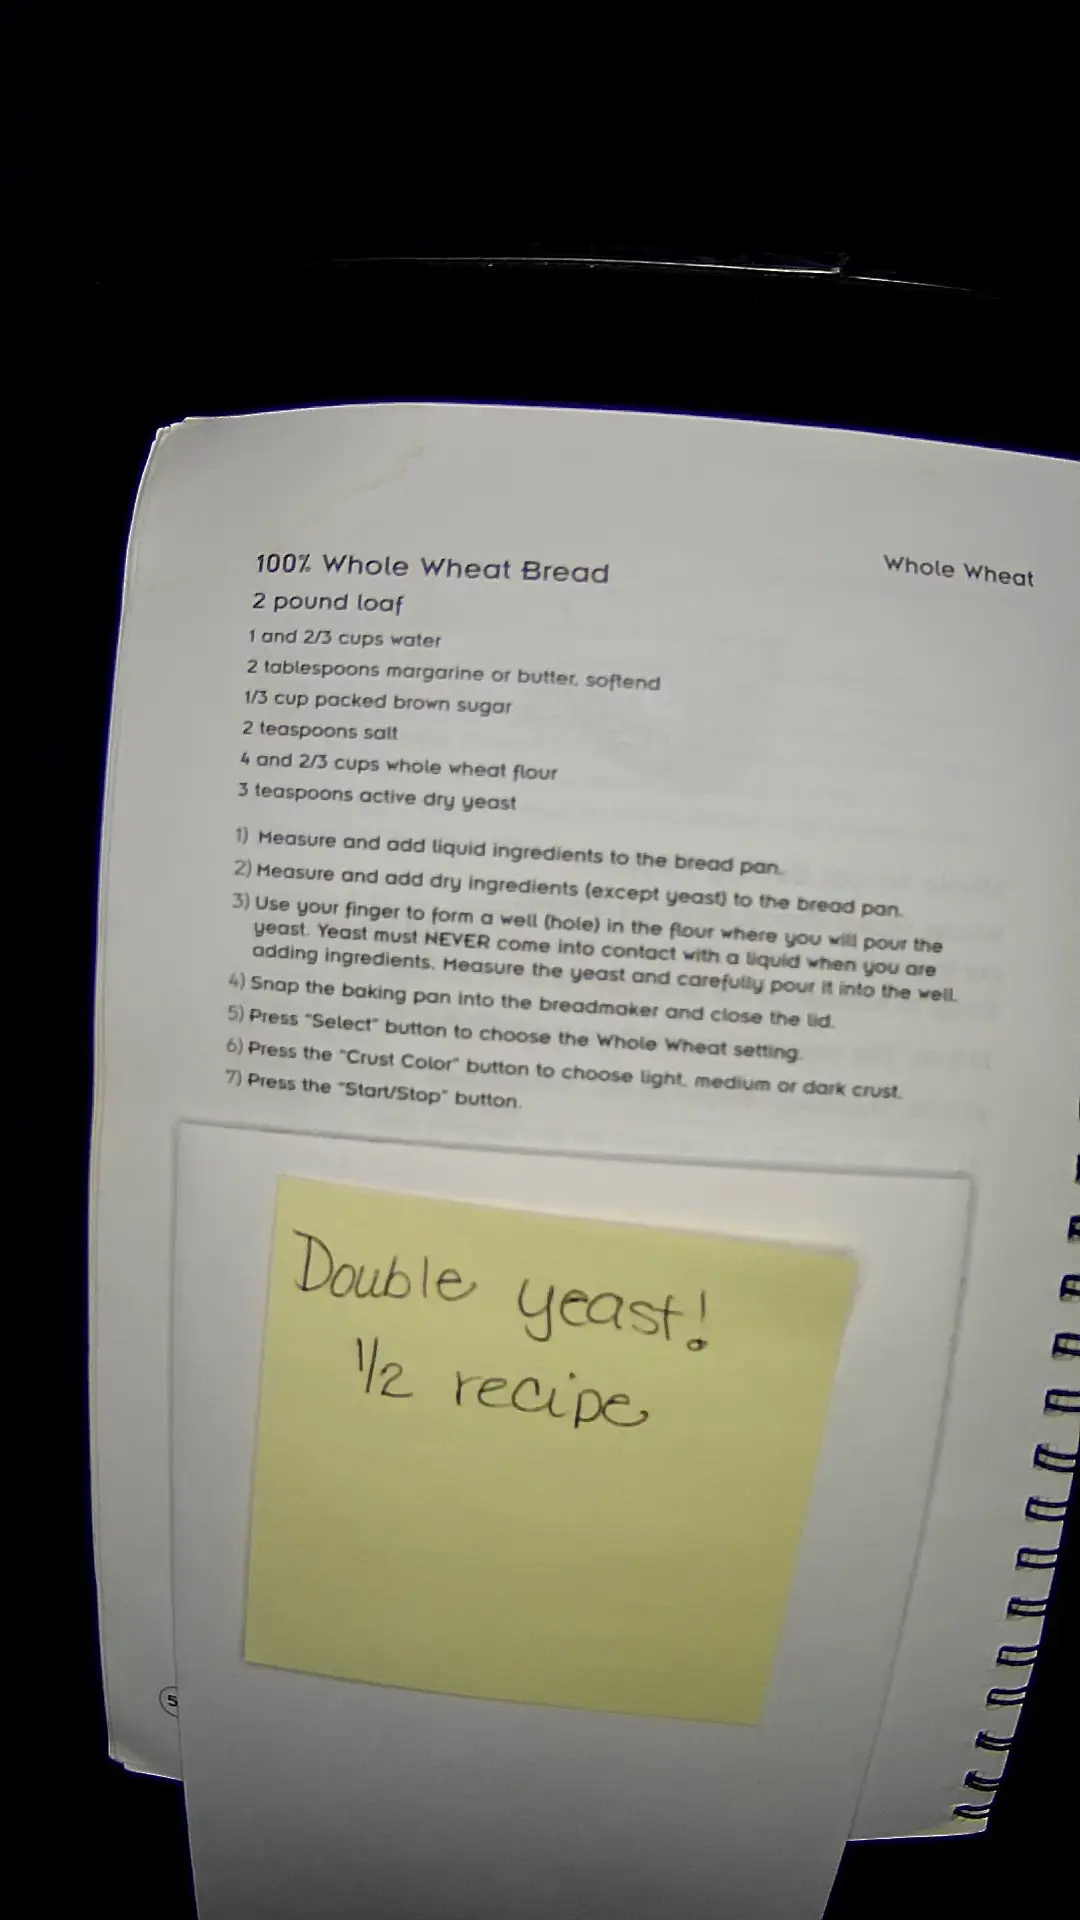 100% Whole Wheat Bread
Whole Wheat
2 pound loaf
1 and 2/3 cups water
2 tablespoons margarine or butter, softend
1/3 cup packed brown sugar
2 teaspoons salt
4 and 2/3 cups whole wheat flour
3 teaspoons active dry yeast
1) Measure and add liquid ingredients to the bread pan.
2) Measure and add dry ingredients (except yeast) to the bread pan.
3) Use your finger to form a well (hole) in the flour where you will pour the
yeast. Yeast must NEVER come into contact with a liquid when you are
adding ingredients. Measure the yeast and carefully pour it into the well.
4) Snap the baking pan into the breadmaker and close the lid.
5) Press "Select" button to choose the Whole Wheat setting.
6) Press the "Crust Color" button to choose light, medium or dark crust.
7) Press the "Start/Stop" button.
Double yeast!
1/2 recipe